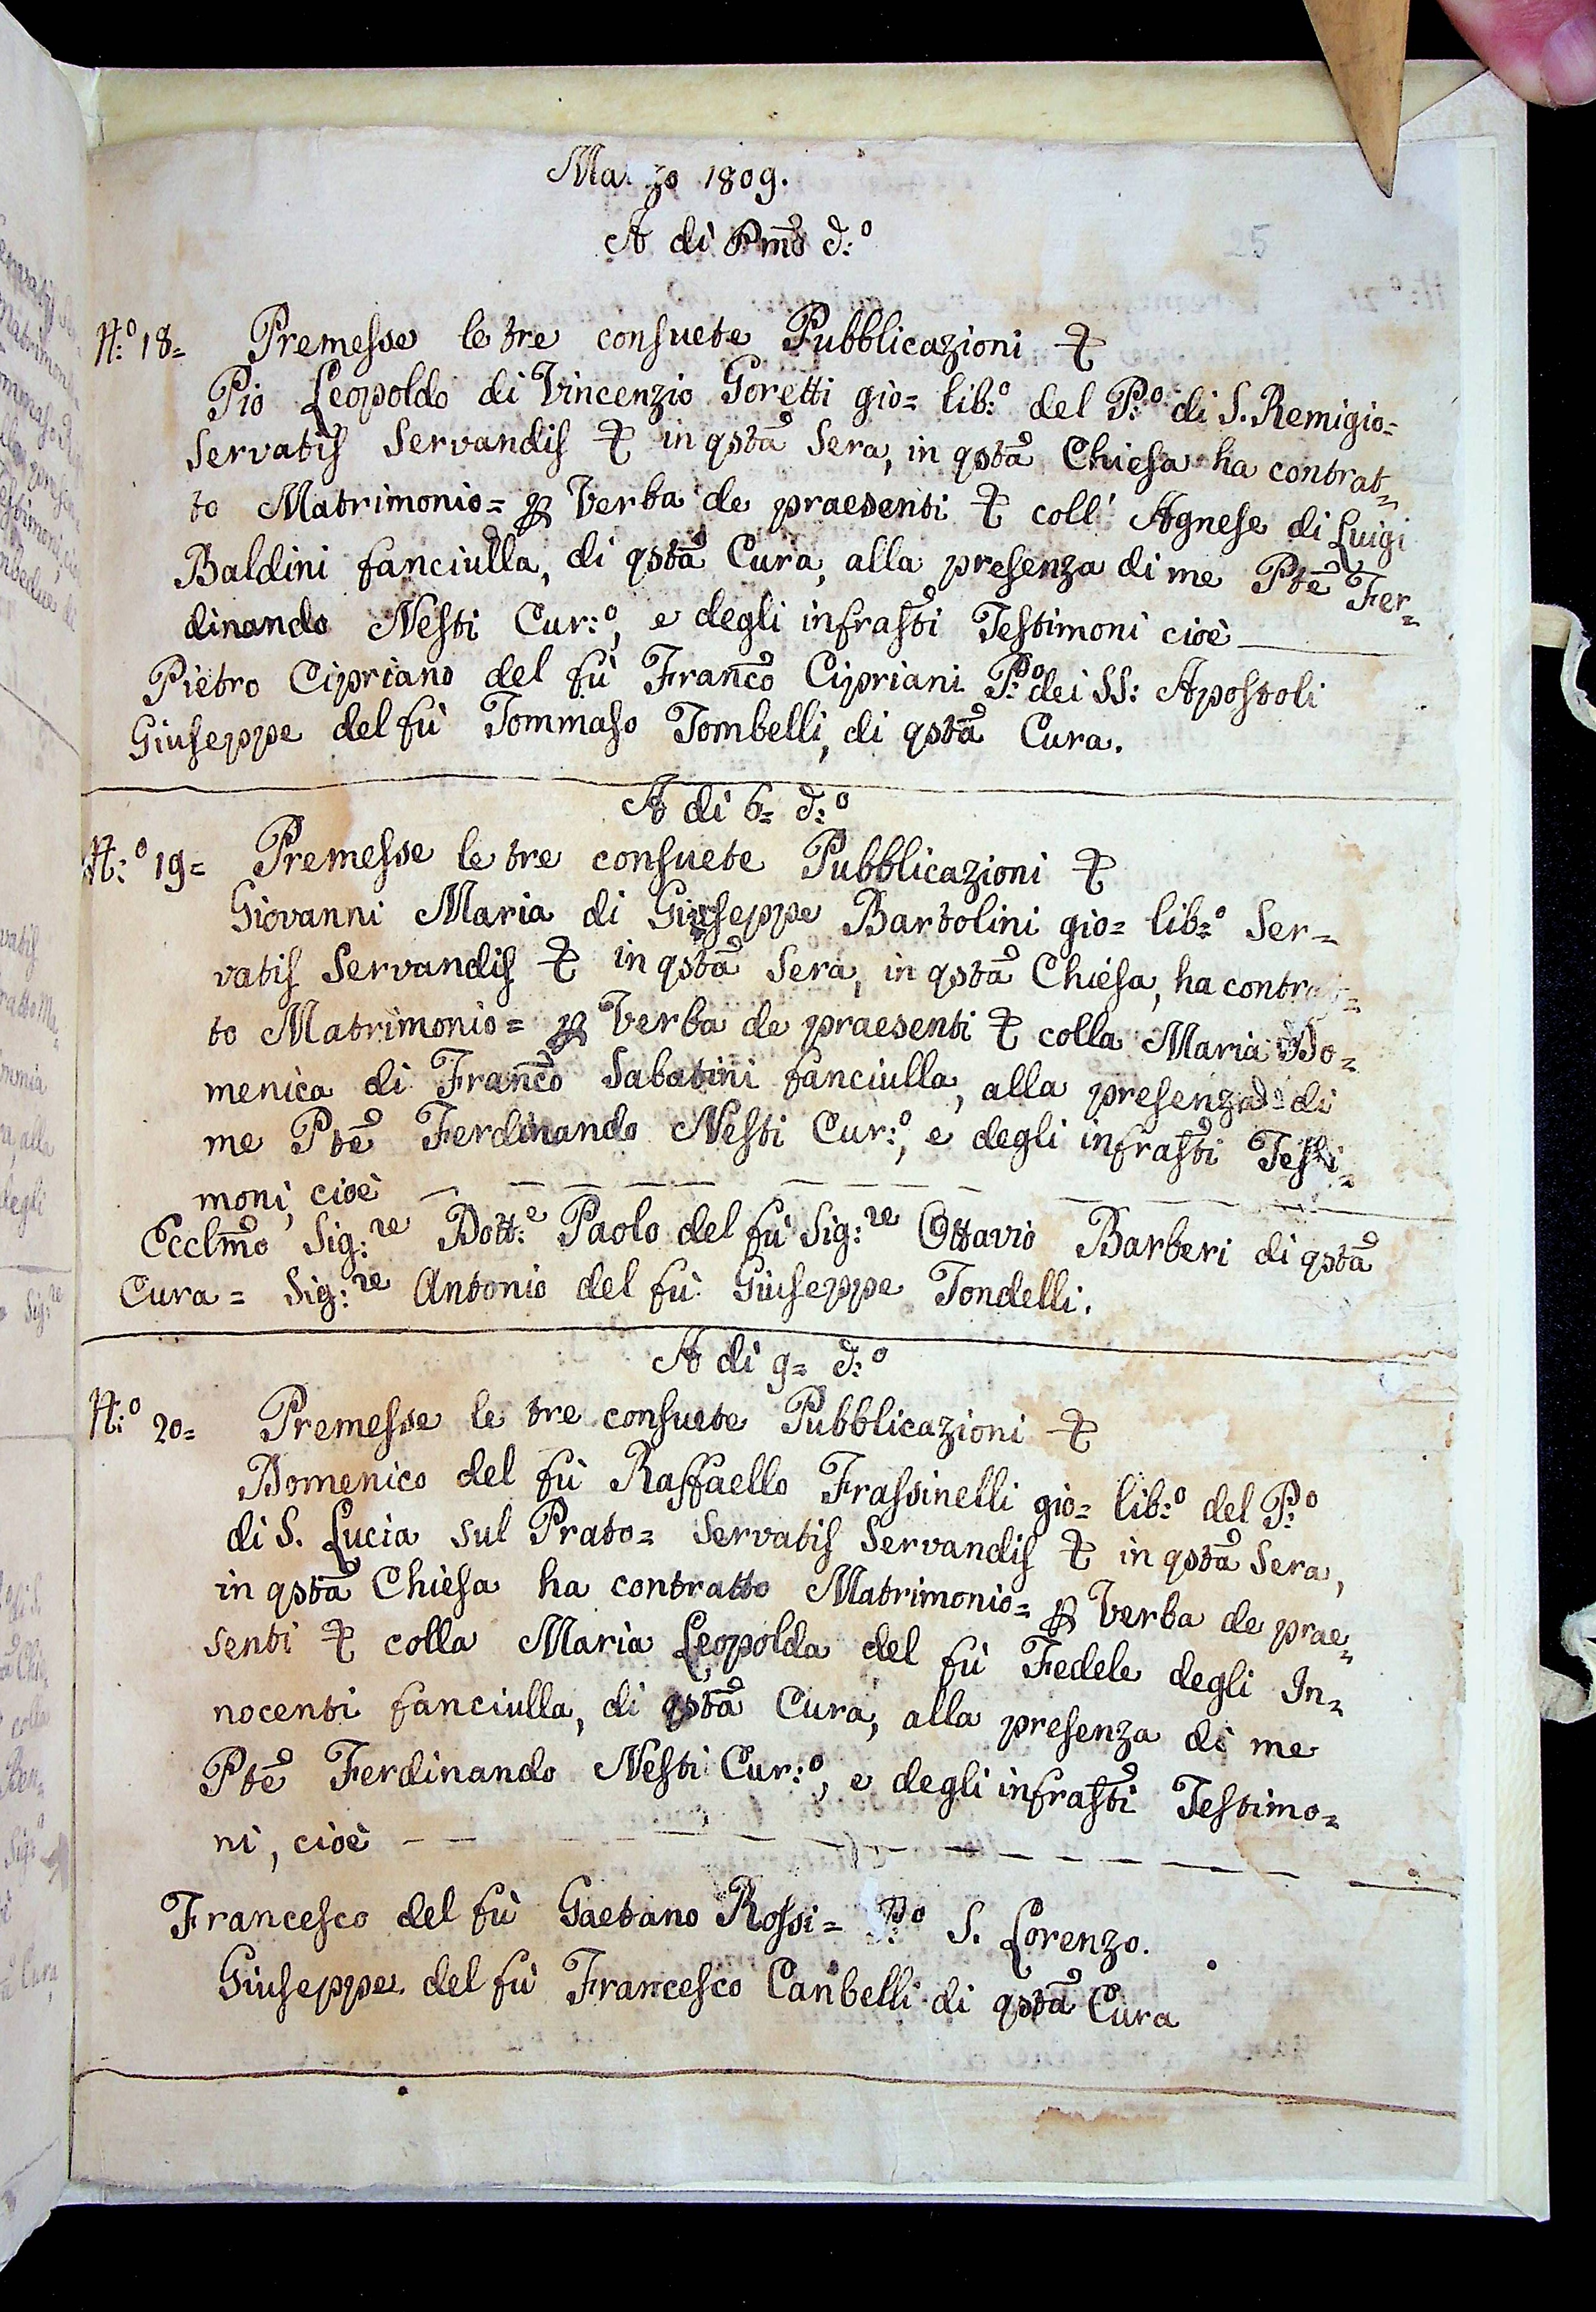 Marzo 1809.
A di Pmo d:o
25
N:o 18= Premesse le tre consuete Pubblicazioni &
Pio Leopoldo di Vincenzio Goretti gio= lib:o del P:o di S. Remigio=
Servatis Servandis & in qsta Sera, in qsta Chiesa ha contrat=
to Matrimonio= p Verba de praesenti & coll' Agnese di Luigi
Baldini fanciulla, di qsta Cura, alla presenza di me Pte Fer=
dinando Nesti Cur:o, e degli infrasti Testimoni cioè
Pietro Cipriano del fù Franco Cipriani P:o dei SS: Apostoli
Giuseppe del fù Tommaso Tombelli, di qsta Cura.
A di 6= d:o
N:o 19= Premesse le tre consuete Pubblicazioni &
Giovanni Maria di Giuseppe Bartolini gio= lib:o Ser=
vatis Servandis & in qsta Sera, in qsta Chiesa, ha contrat=
to Matrimonio= p Verba de praesenti & colla Maria Do=
menica di Franco Sabatini fanciulla, alla presenza di
me Pte Ferdinando Nesti Cur:o, e degli infrasti Testi=
moni, cioè
Ecclmo Sig:re Dott:e Paolo del fù Sig:re Ottavio Barberi di qsta
Cura= Sig:re Antonio del fù Giuseppe Tondelli.
A di 9= d:o
N:o 20= Premesse le tre consuete Pubblicazioni &
Domenico del fù Raffaello Frassinelli gio= lib:o del P:o
di S. Lucia sul Prato= Servatis Servandis & in qsta Sera,
in qsta Chiesa ha contratto Matrimonio= p Verba de prae=
senti & colla Maria Leopolda del fù Fedele degli In=
nocenti fanciulla, di qsta Cura, alla presenza di me
Pte Ferdinando Nesti Cur:o, e degli infrasti Testimo=
ni, cioè
Francesco del fù Gaetano Rossi= P:o S. Lorenzo.
Giuseppe del fù Francesco Canbelli di qsta Cura